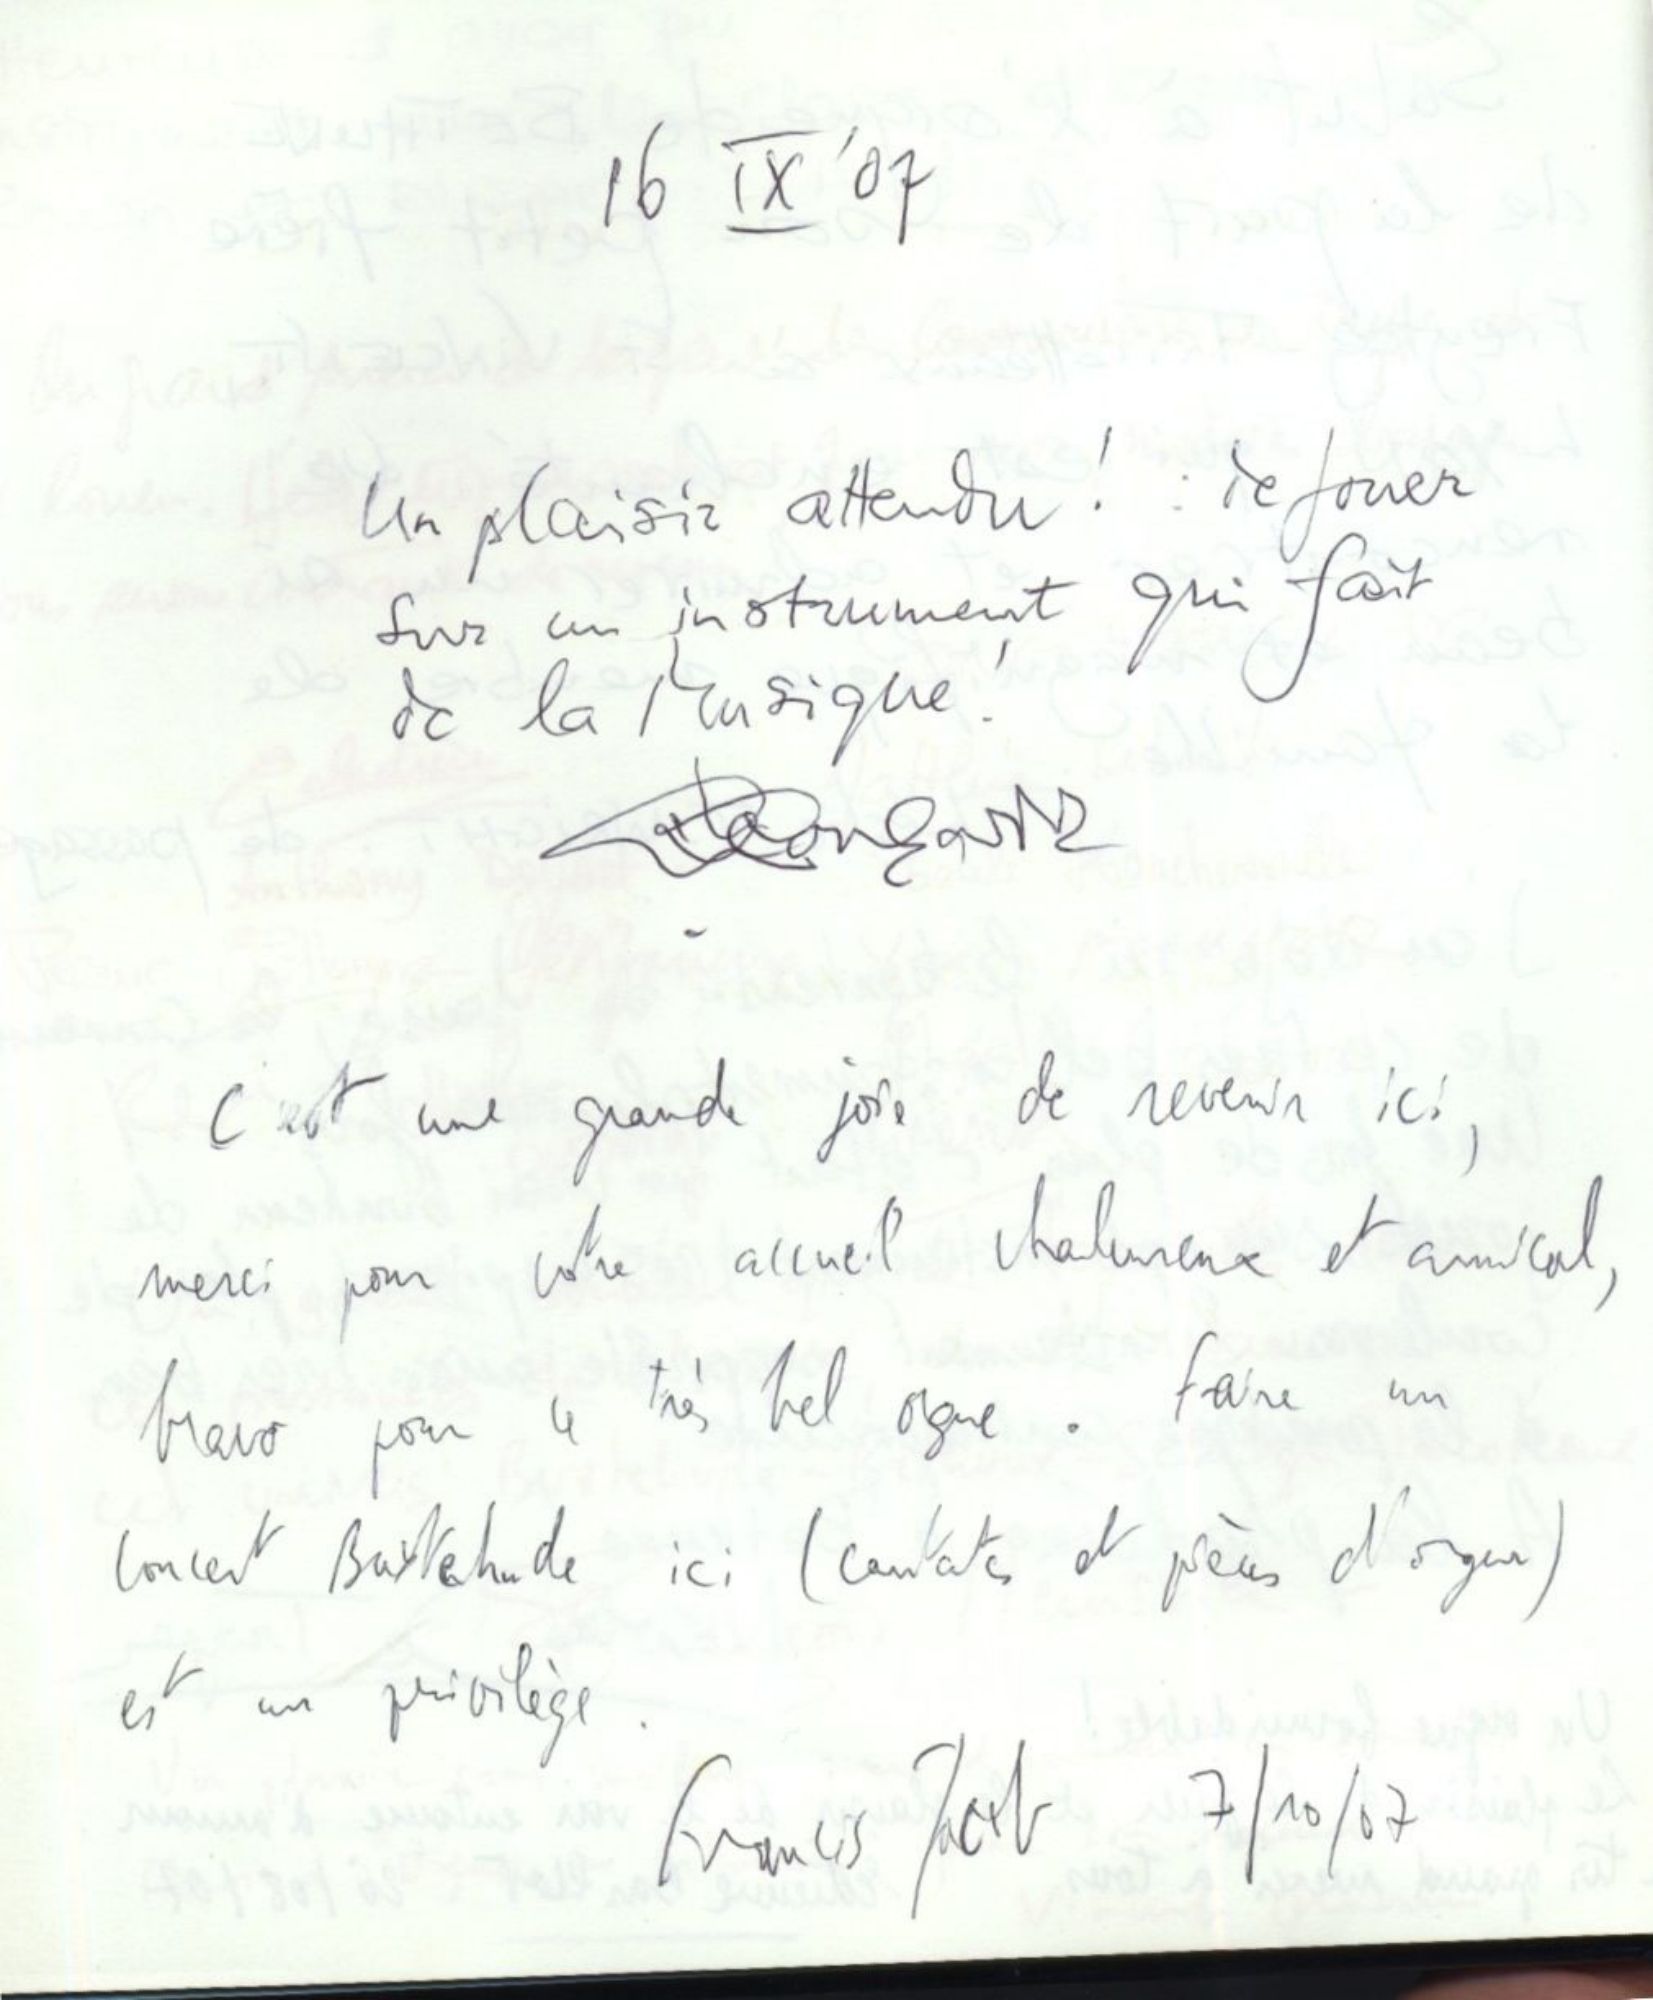 16 IX '07
Un plaisir attendu! : de jouer
sur un instrument qui fait
de la Musique!
C'est une grande joie de revenir ici,
merci pour votre accueil chaleureux et amical,
bravo pour ce très bel orgue. Faire un
concert Buxtehude ici (cantates et pièces d'orgue)
est un privilège.
Francis Jacob 7/10/07